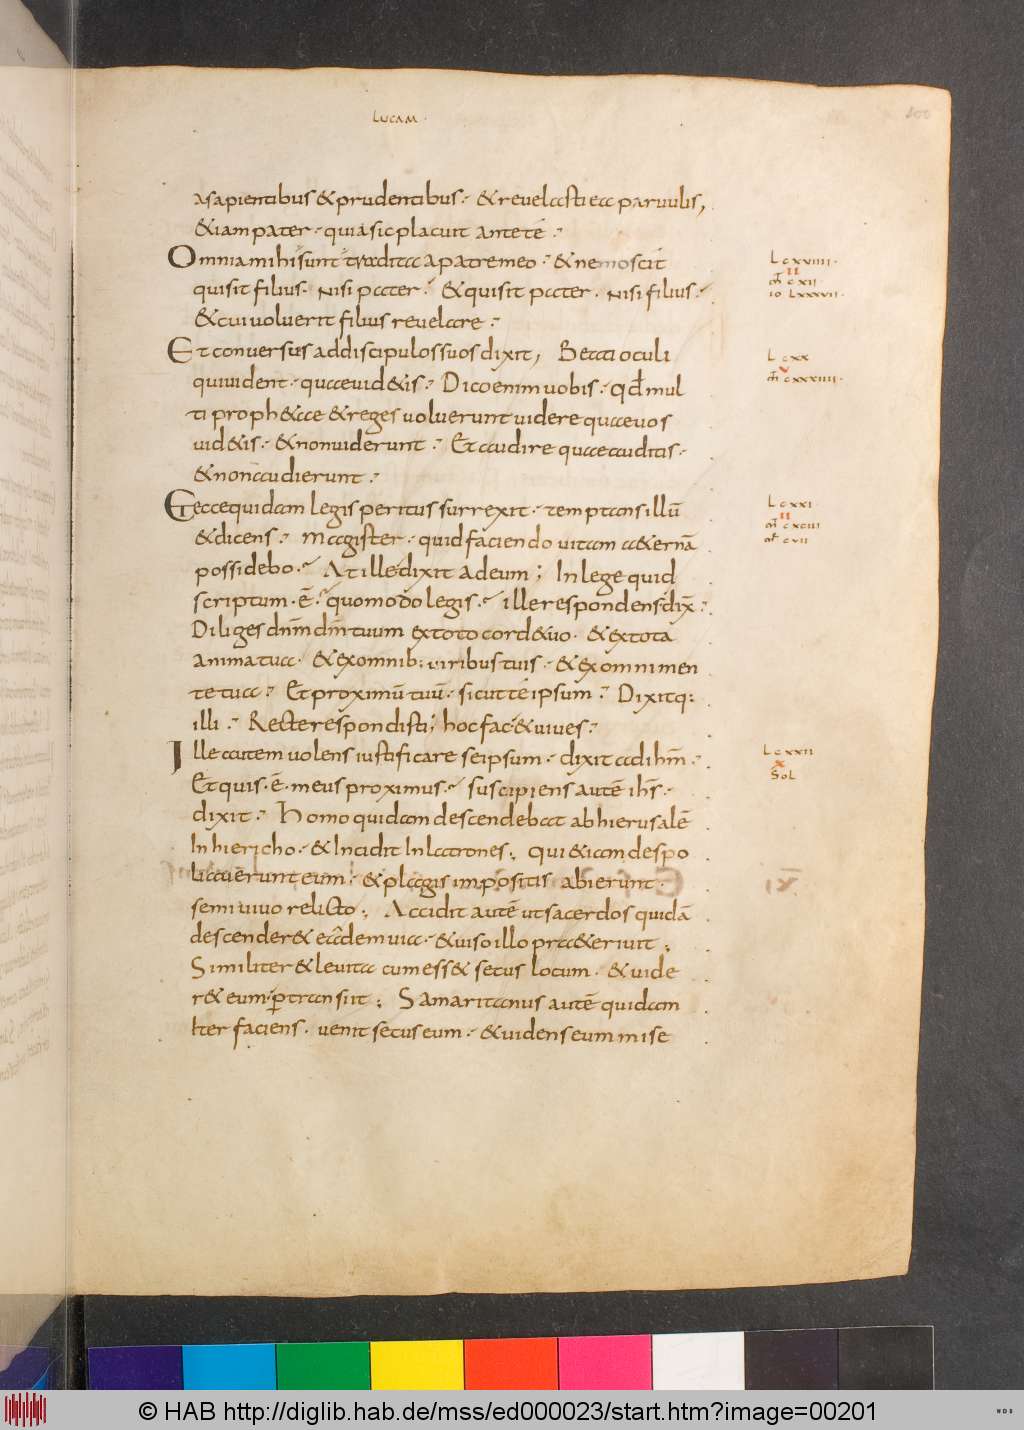 LUCAM
100
a sapientibus & prudentibus. & revelasti ea parvulis,
& iam pater. quia sic placuit ante te.
Omnia mihi sunt tradita a patre meo. & nemo scit
qui sit filius. nisi pater. & qui sit pater. nisi filius.
& cui voluerit filius revelare.
Et conversus ad discipulos suos dixit, Beati oculi
qui vident. quae vid&is. Dico enim vobis. qđ mul
ti proph&ae & reges voluerunt videre quae vos
vid&is. & non viderunt. Et audire quae auditis.
& non audierunt.
Et ecce quidam legis peritus surrexit. temptans illū
& dicens. Magister. quid faciendo vitam a&ernā
possidebo. At ille dixit ad eum; In lege quid
scriptum. ē. quomodo legis. ille respondens dix̄.
Diliges dnm̄ dm̄ tuum ex toto cord& uo. & ex tota
anima tua. & ex omnib: viribus tuis. & ex omni men
te tua. Et proximū tuū. sicut te ipsum. Dixitq:
illi. Recte respondisti; hoc fac & vives.
Ille autem volens iustificare se ipsum. dixit ad ihm̄.
Et quis. ē. meus proximus. suscipiens autē ihs̄.
dixit. Homo quidam descendebat ab hierusalē
In hiericho. & Incidit In latrones; qui &iam despo
liaverunt eum. & plagis impositis abierunt.
semivivo relicto; Accidit autē ut sacerdos quidā
descender& eadem via. & viso illo prae&erivit;
Similiter & levita cum ess& secus locum. & vide
r& eum. p̱transiit; Samaritanus autē quidam
Iter faciens. venit secus eum. & videns eum mise
L cxviiii.
III
m̄ cxii
io Lxxxvii.
L cxx
v
m̄ cxxxiiii.
L cxxi
II
m̄ cxciii
mr̄ cvii
L cxxii
x
Sol
© HAB http://diglib.hab.de/mss/ed000023/start.htm?image=00201
WDB